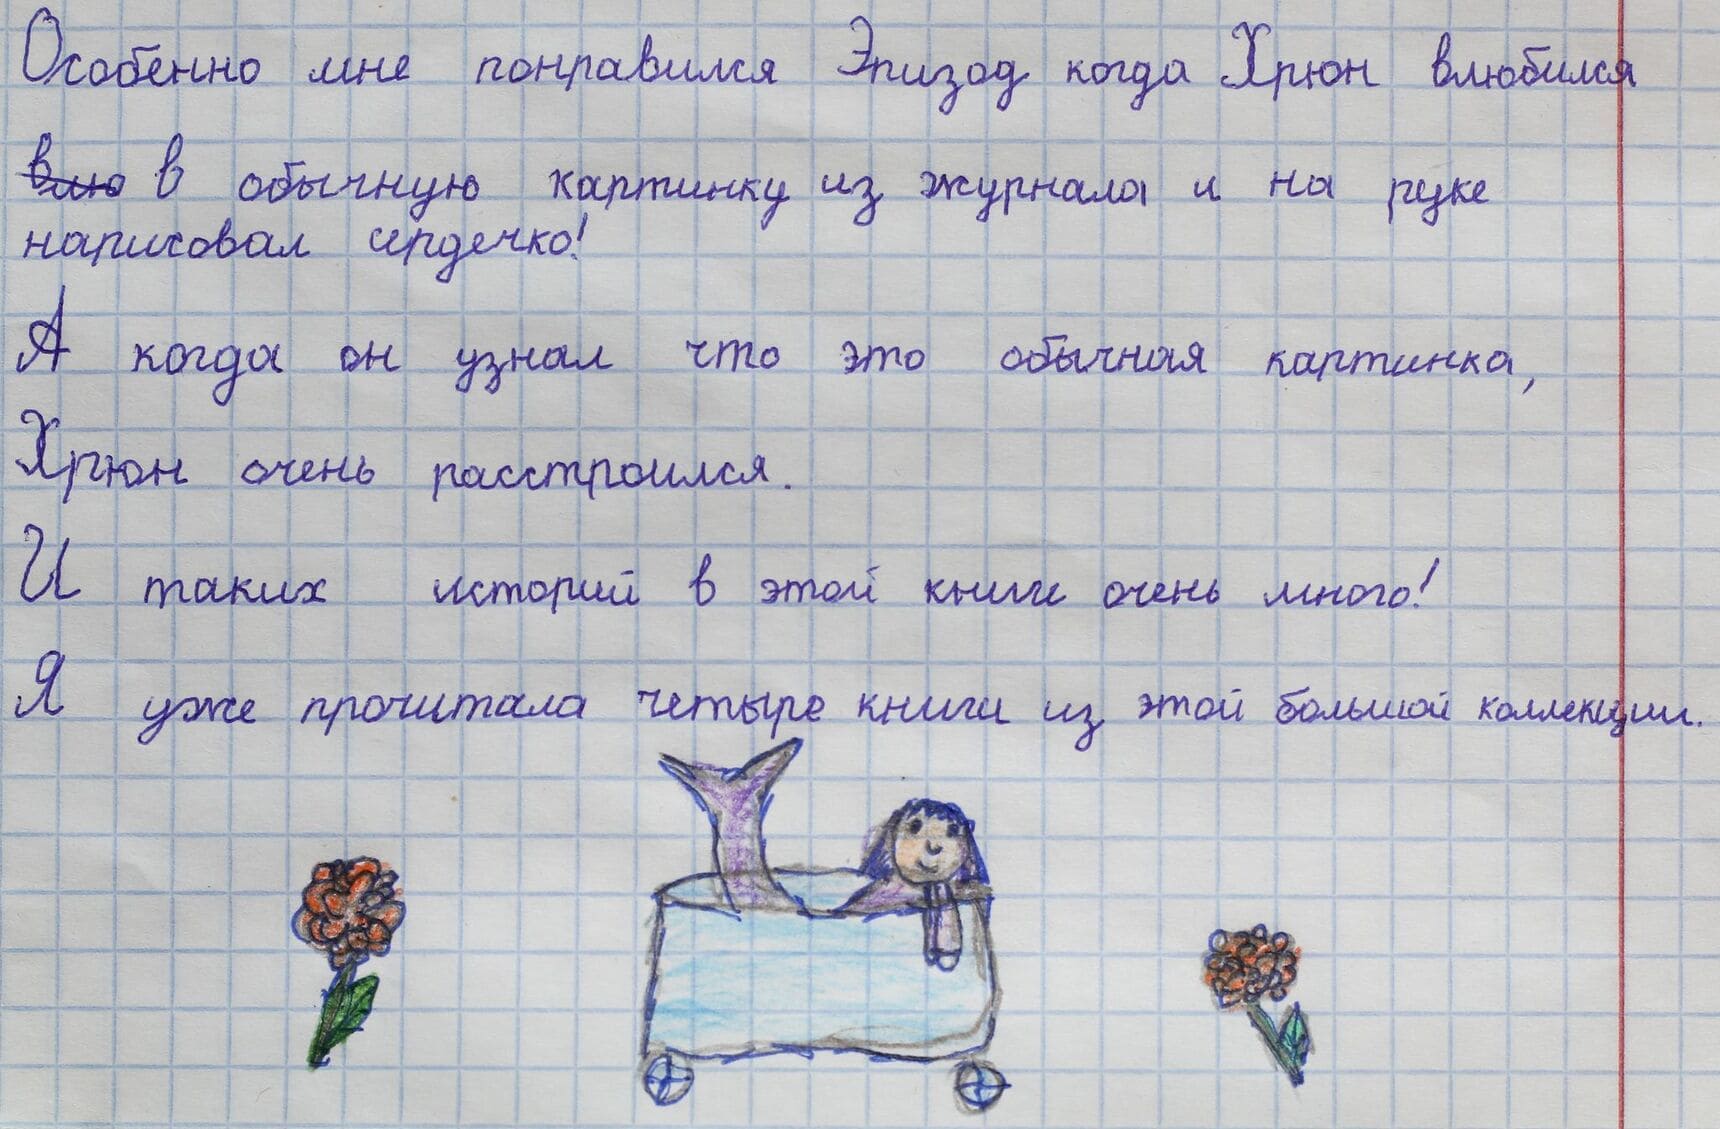 Особенно мне понравился Эпизод когда Хрюн влюбился
влю в обычную картинку из журнала и на руке
нарисовал сердечко!
А когда он узнал что это обычная картинка,
Хрюн очень расстроился.
И таких историй в этой книге очень много!
Я уже прочитала четыре книги из этой большой коллекции.